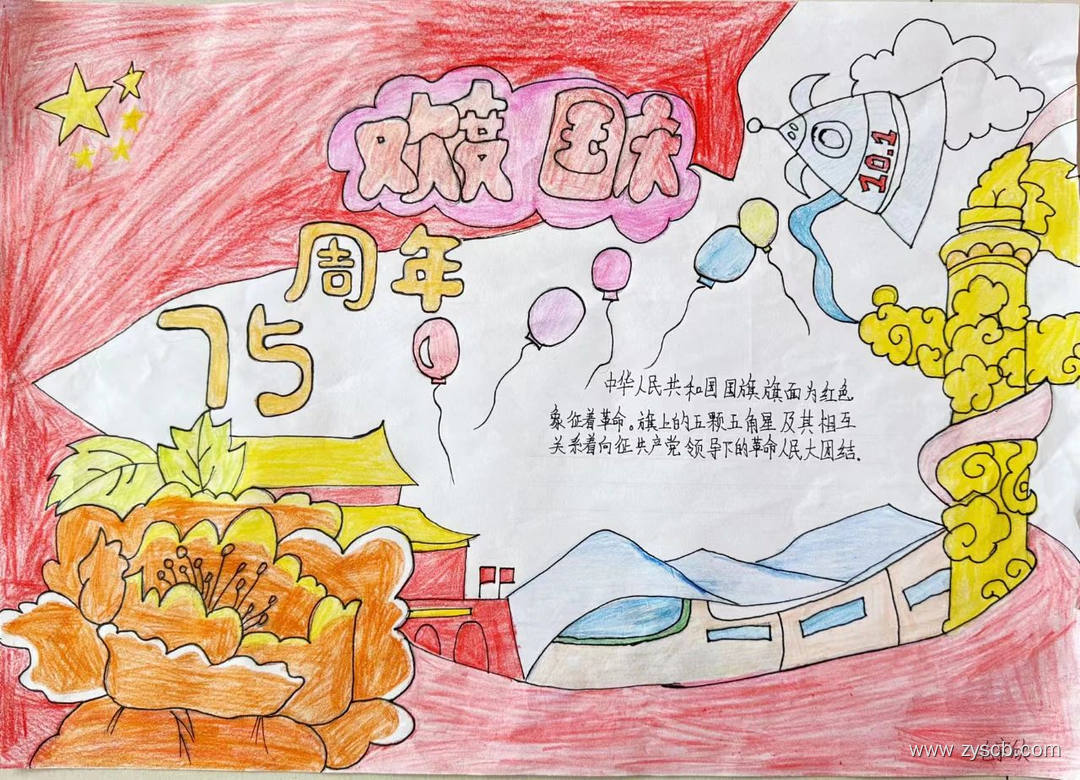 欢度 国庆
周年
75
10.1
中华人民共和国国旗旗面为红色
象征着革命。旗上的五颗五角星及其相互
关系着向征共产党领导下的革命人民大团结.
www.zyscb.com